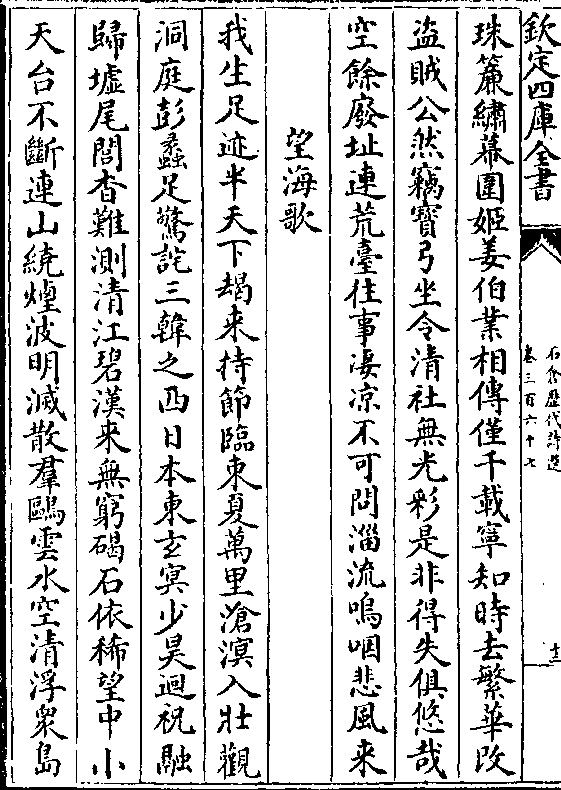 欽定四庫全書
石倉歷代詩選
卷三百六十七
十三
珠簾繡幕圍姬姜伯業相傳僅千載寧知時去繁華改
盜賊公然竊寶弓坐令清社無光彩是非得失俱悠哉
空餘廢址連荒臺往事凄凉不可問淄流嗚咽悲風來
望海歌
我生足迹半天下朅来持節臨東夏萬里滄溟入壯觀
洞庭彭蠡足驚詫三韓之西日本東玄冥少昊迴祝融
歸墟尾閭杳難測清江碧漢来無窮碣石依稀望中小
天台不斷連山繞煙波明滅散羣鷗雲水空清浮衆島